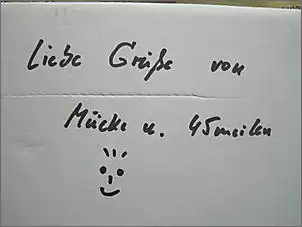 Liebe Grüße von
Mücke u. 45meilen